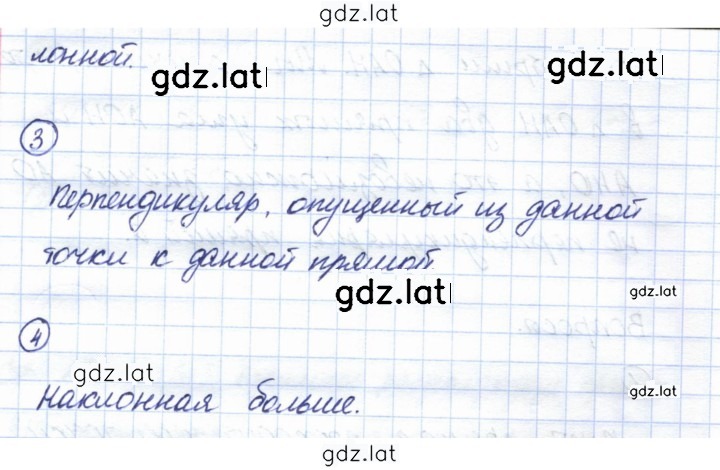 gdz.lat
лонной.
gdz.lat
gdz.lat
3
Перпендикуляр, опущенный из данной
точки к данной прямой.
gdz.lat
gdz.lat
4
gdz.lat
Наклонная больше.
gdz.lat
gdz.lat